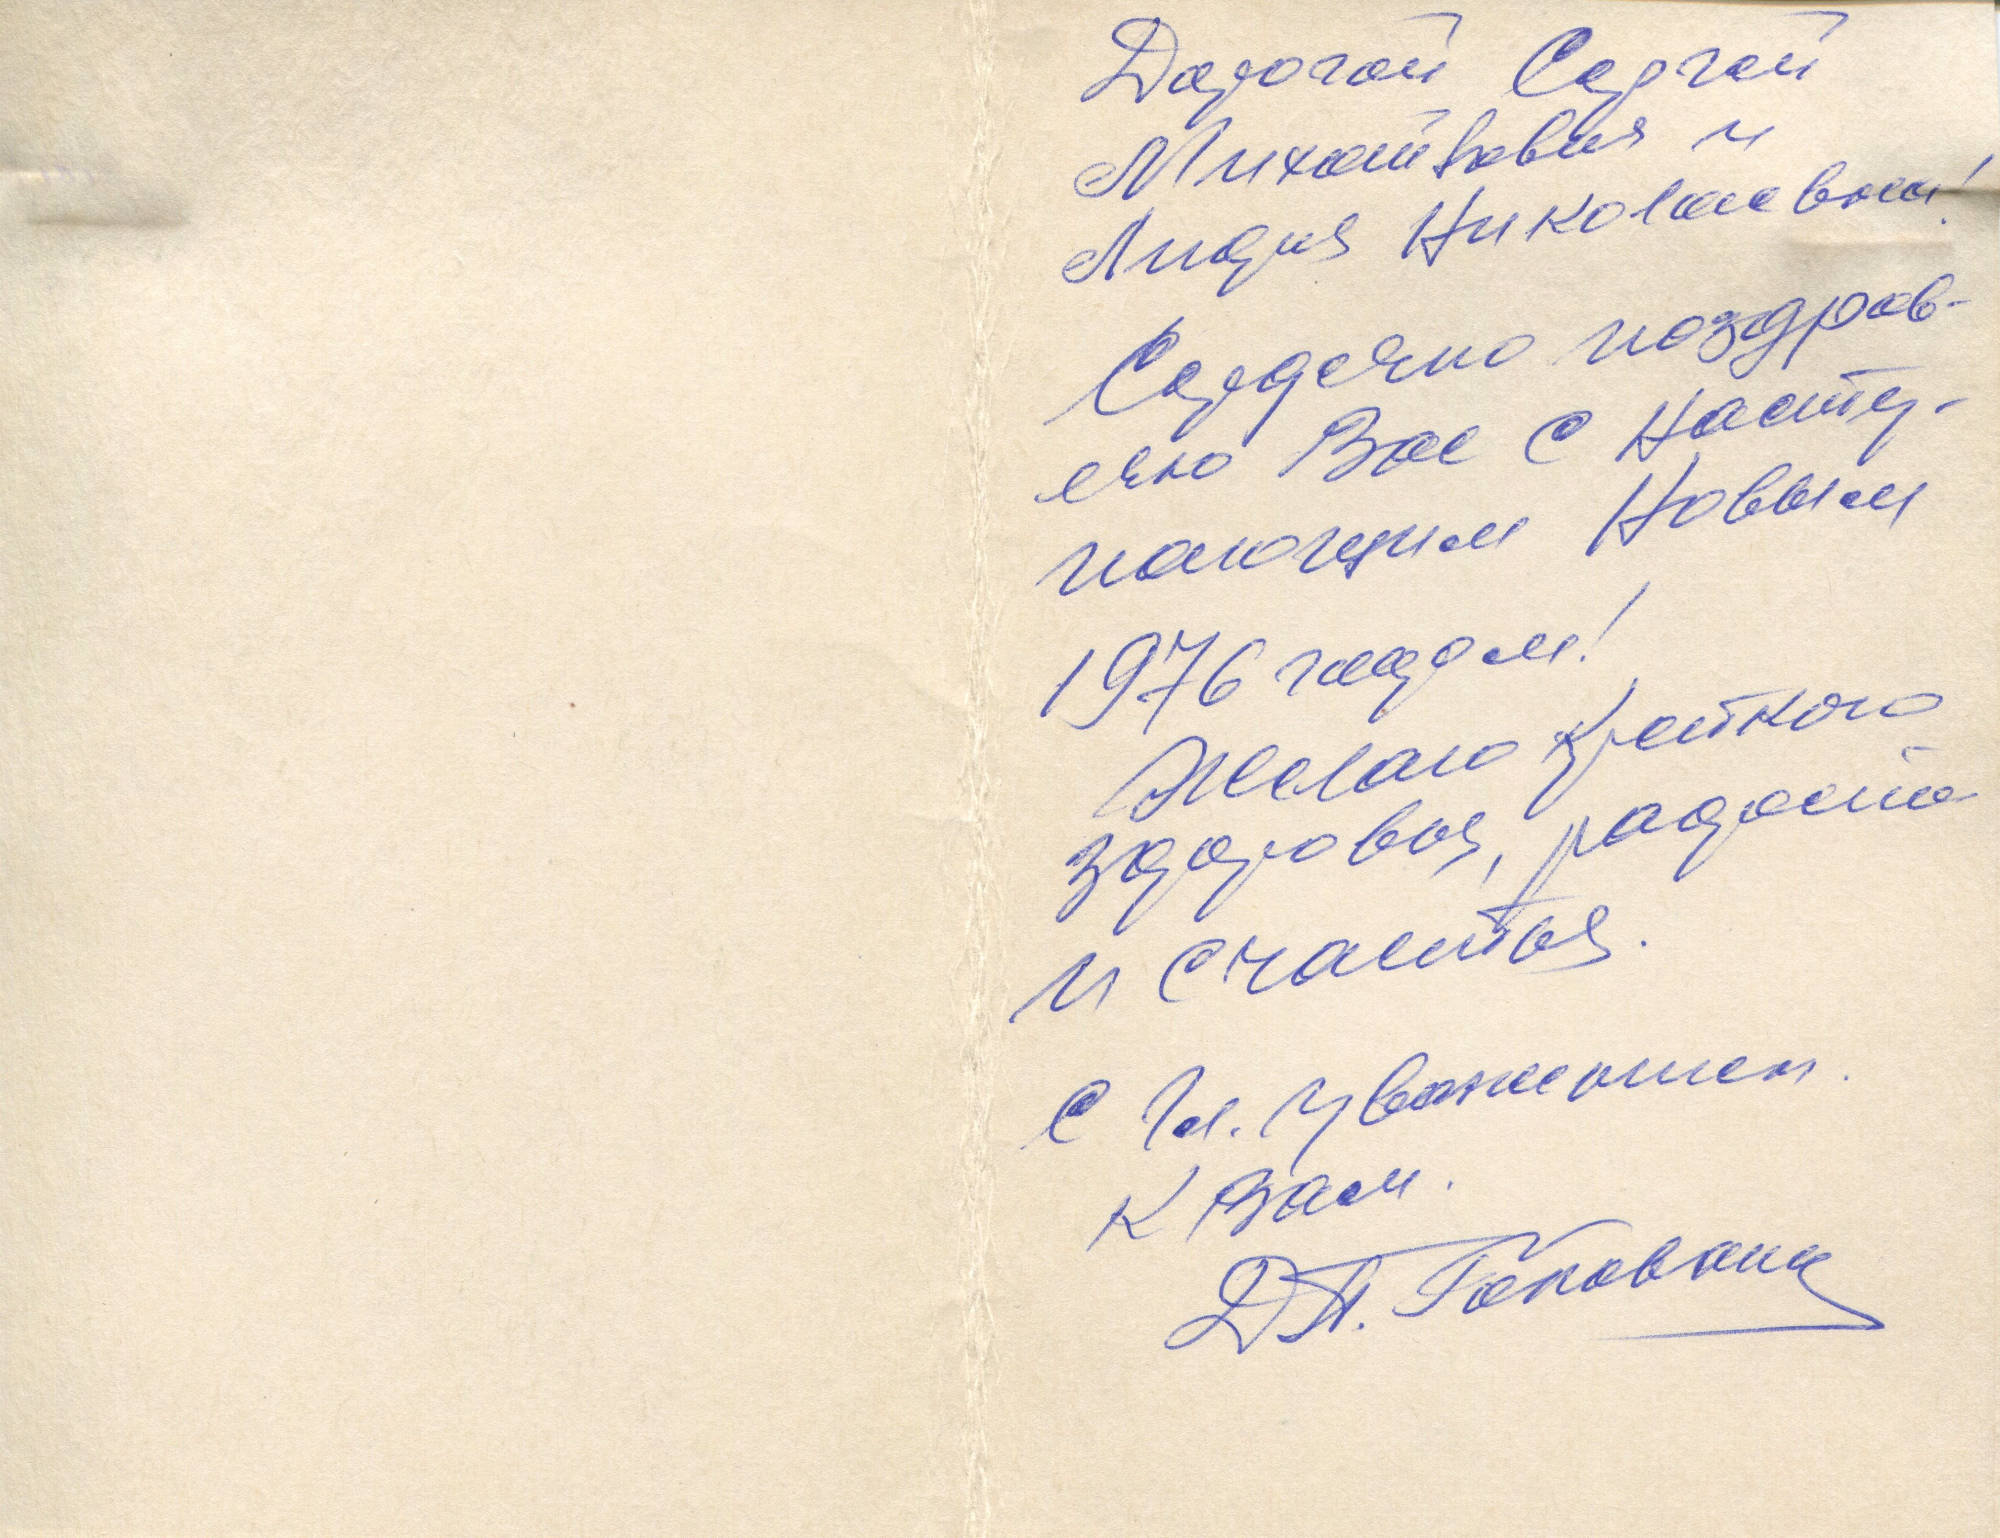 Дорогой Сергей
Михайлович и
Лидия Николаевна!
Сердечно поздрав-
ляю Вас с Насту-
пающим Новым
1976 годом!
Желаю крепкого
здоровья, радости
и счастья.
С Гл. уважением
к Вам.